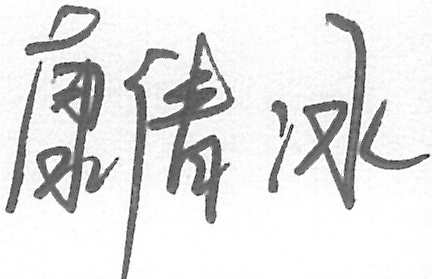 康倩冰